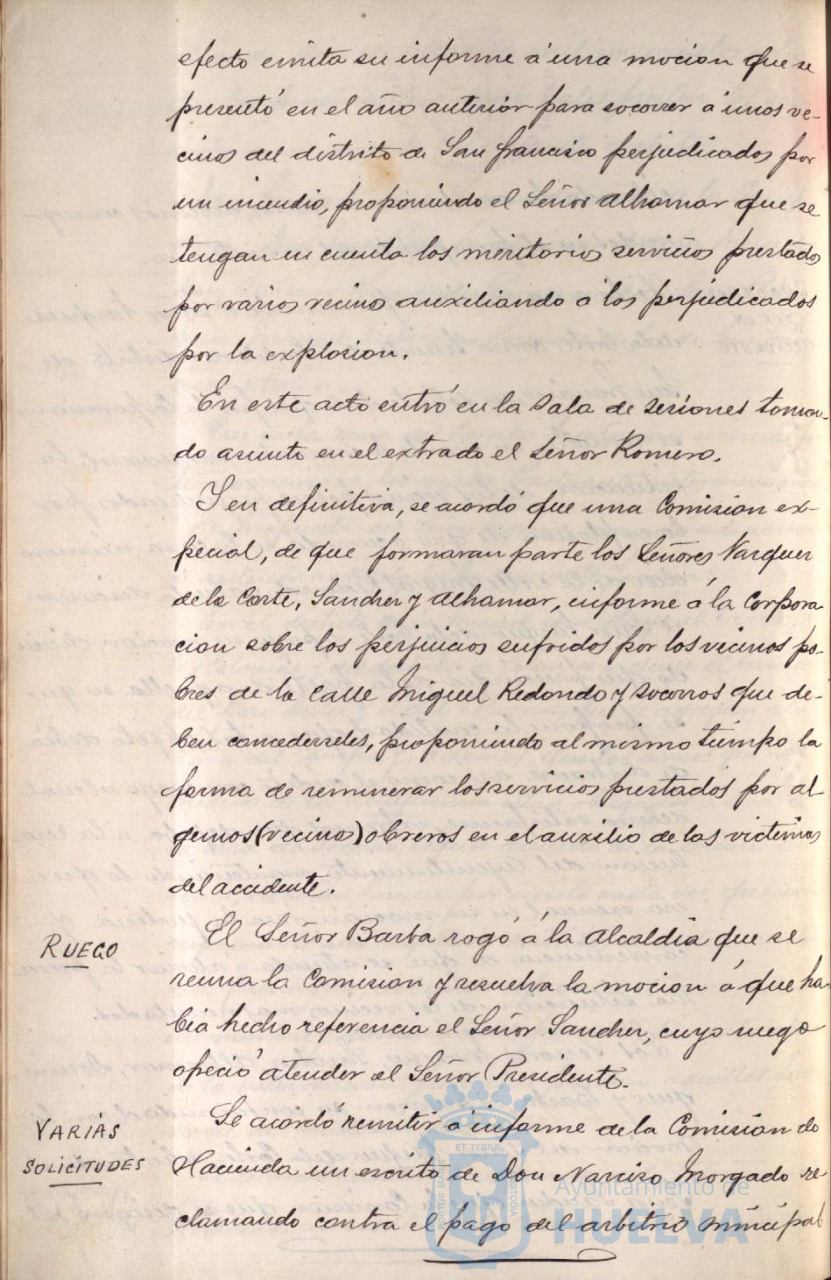 efecto emita su informe á una mocion que se
presentó en el año anterior para socorrer á unos ve-
cinos del distrito de San francisco perjudicados por
un incendio, proponiendo el Señor Alhamar que se
tengan en cuenta los meritorios servicios prestados
por varios vecinos auxiliando á los perjudicados
por la explosion.
En este acto entró en la Sala de Sesiones toman-
do asiento en el extrado el Señor Romero.
Y en definitiva, se acordó que una Comision ex-
pecial, de que formaran parte los Señores Vazquez
de la Corte, Sanchez y Alhamar, informe á la Corpora
cion sobre los perjuicios sufridos por los vecinos po-
bres de la Calle Miguel Redondo y socorros que de-
ben concederseles, proponiendo al mismo tiempo la
forma de remunerar los servicios prestados por al
gunos (vecinos) obreros en el auxilio de las victimas
del accidente.
RUEGO
El Señor Barba rogó á la Alcaldia que se
reuna la Comision y resuelva la mocion á que ha-
bia hecho referencia el Señor Sanchez, cuyo ruego
ofreció atender el Señor Presidente.
VARIAS
SOLICITUDES
Se acordó remitir á informe de la Comision de
Hacienda un escrito de Don Narciso Morgado re
clamando contra el pago del arbitrio municipal
Ayuntamiento de
HUELVA